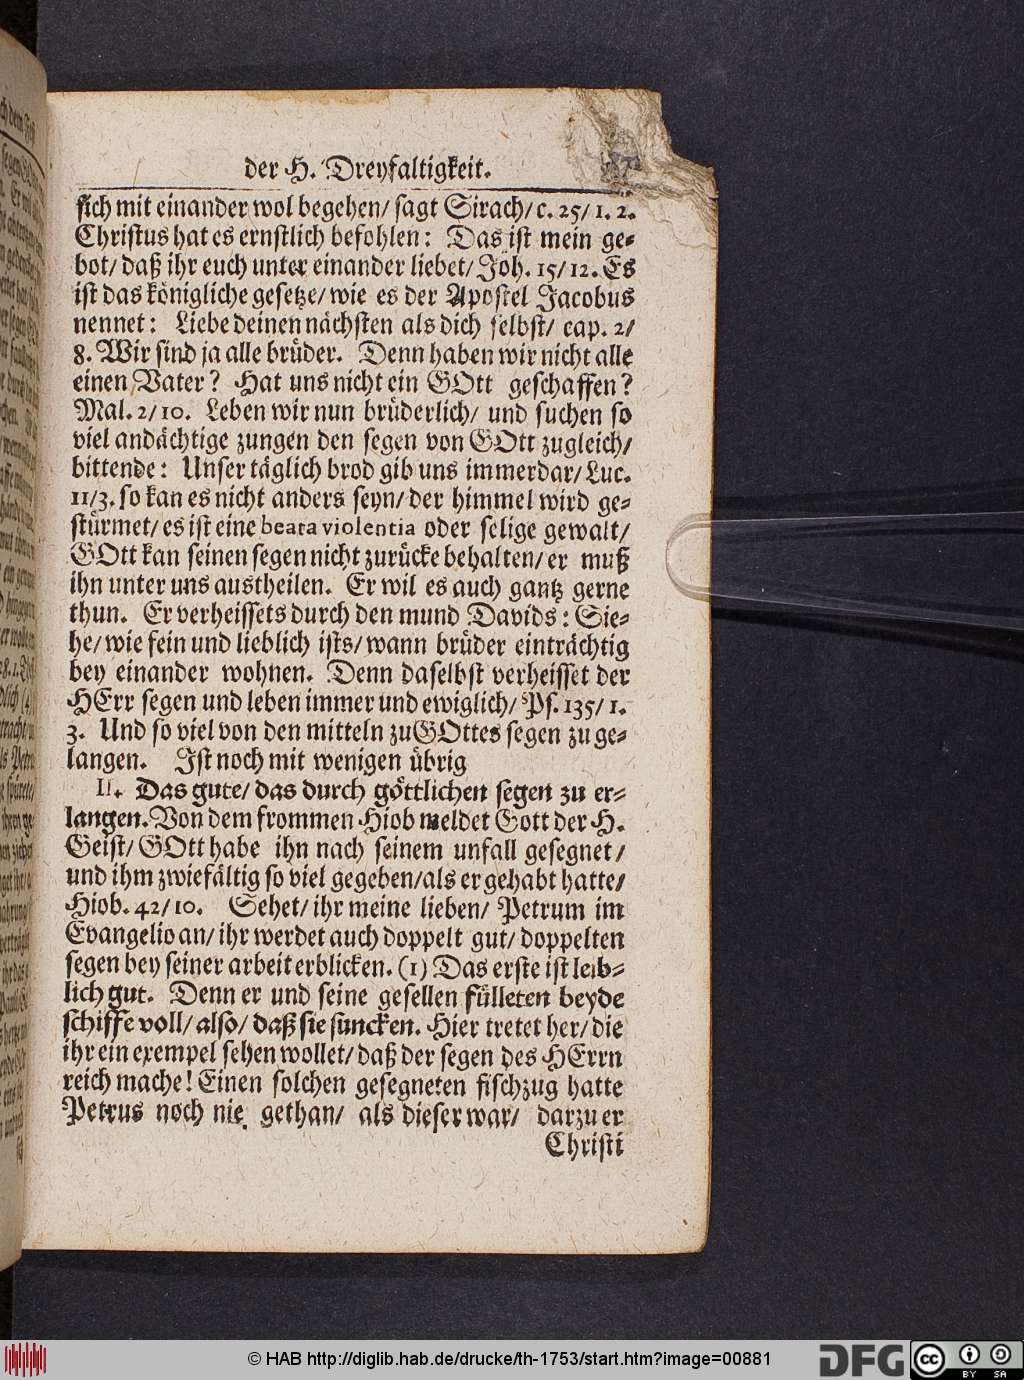 der H. Dreyfaltigkeit.
sich mit einander wol begehen/ sagt Sirach/ c. 25/ 1. 2.
Christus hat es ernstlich befohlen: Das ist mein ge-
bot/ daß ihr euch unter einander liebet/ Joh. 15/ 12. Es
ist das königliche gesetze/ wie es der Apostel Jacobus
nennet: Liebe deinen nächsten als dich selbst/ cap. 2/
8. Wir sind ja alle brüder. Denn haben wir nicht alle
einen Vater? Hat uns nicht ein GOtt geschaffen?
Mal. 2/ 10. Leben wir nun brüderlich/ und suchen so
viel andächtige zungen den segen von GOtt zugleich/
bittende: Unser täglich brod gib uns immerdar/ Luc.
11/3. so kan es nicht anders seyn/ der himmel wird ge-
stürmet/ es ist eine beata violentia oder selige gewalt/
GOtt kan seinen segen nicht zurücke behalten/ er muß
ihn unter uns austheilen. Er wil es auch gantz gerne
thun. Er verheissets durch den mund Davids: Sie-
he/ wie fein und lieblich ists/ wann brüder einträchtig
bey einander wohnen. Denn daselbst verheisset der
HErr segen und leben immer und ewiglich/ Ps. 135/ 1.
3. Und so viel von den mitteln zu GOttes segen zu ge-
langen. Ist noch mit wenigen übrig
II. Das gute/ das durch göttlichen segen zu er-
langen. Von dem frommen Hiob meldet Gott der H.
Geist/ GOtt habe ihn nach seinem unfall gesegnet/
und ihm zwiefältig so viel gegeben/ als er gehabt hatte/
Hiob. 42/ 10. Sehet/ ihr meine lieben/ Petrum im
Evangelio an/ ihr werdet auch doppelt gut/ doppelten
segen bey seiner arbeit erblicken. (1) Das erste ist leib-
lich gut. Denn er und seine gesellen fülleten beyde
schiffe voll/ also/ daß sie suncken. Hier tretet her/ die
ihr ein exempel sehen wollet/ daß der segen des HErrn
reich mache! Einen solchen gesegneten fischzug hatte
Petrus noch nie gethan/ als dieser war/ darzu er
Christi
© HAB http://diglib.hab.de/drucke/th-1753/start.htm?image=00881
DFG
cc
BY SA